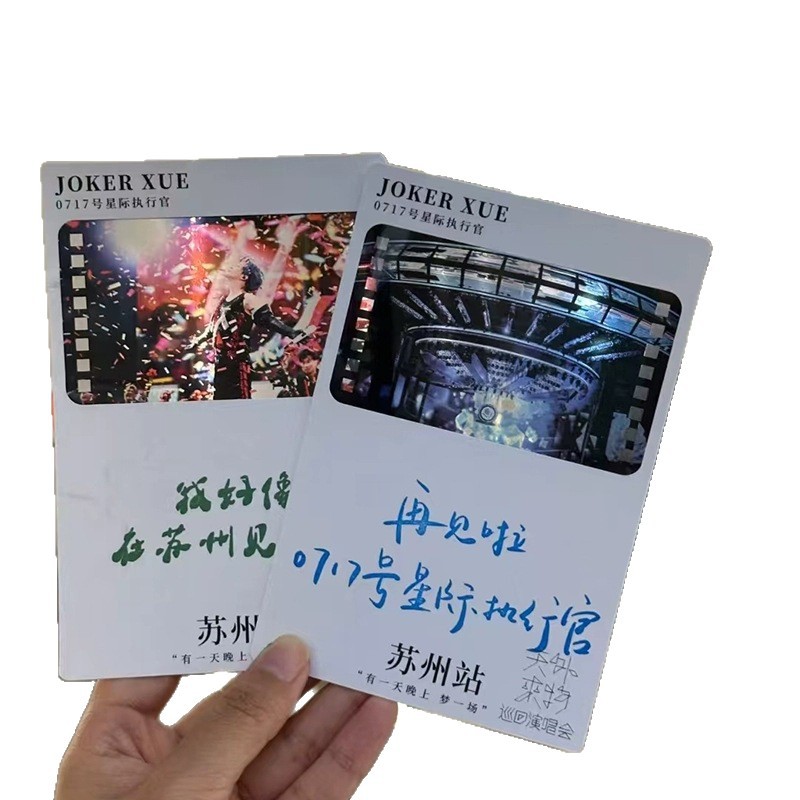 JOKER XUE
0717号星际执行官
我好像
在苏州见
苏州
“有一天晚上
JOKER XUE
0717号星际执行官
再见啦
0717号星际执行官
苏州站
“有一天晚上 梦一场”
天外
来物
巡回演唱会